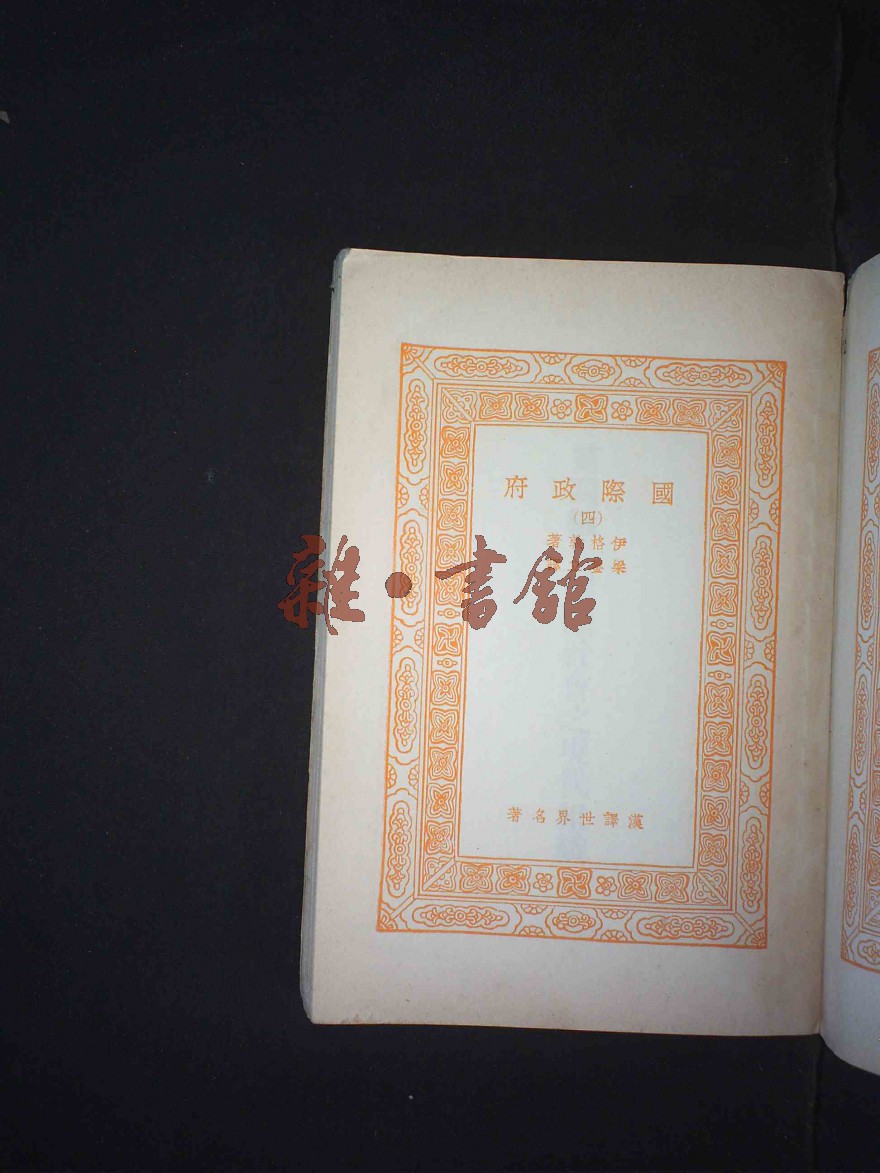 國際政府
(四)
伊格 著
梁
漢譯世界名著
雜·書館